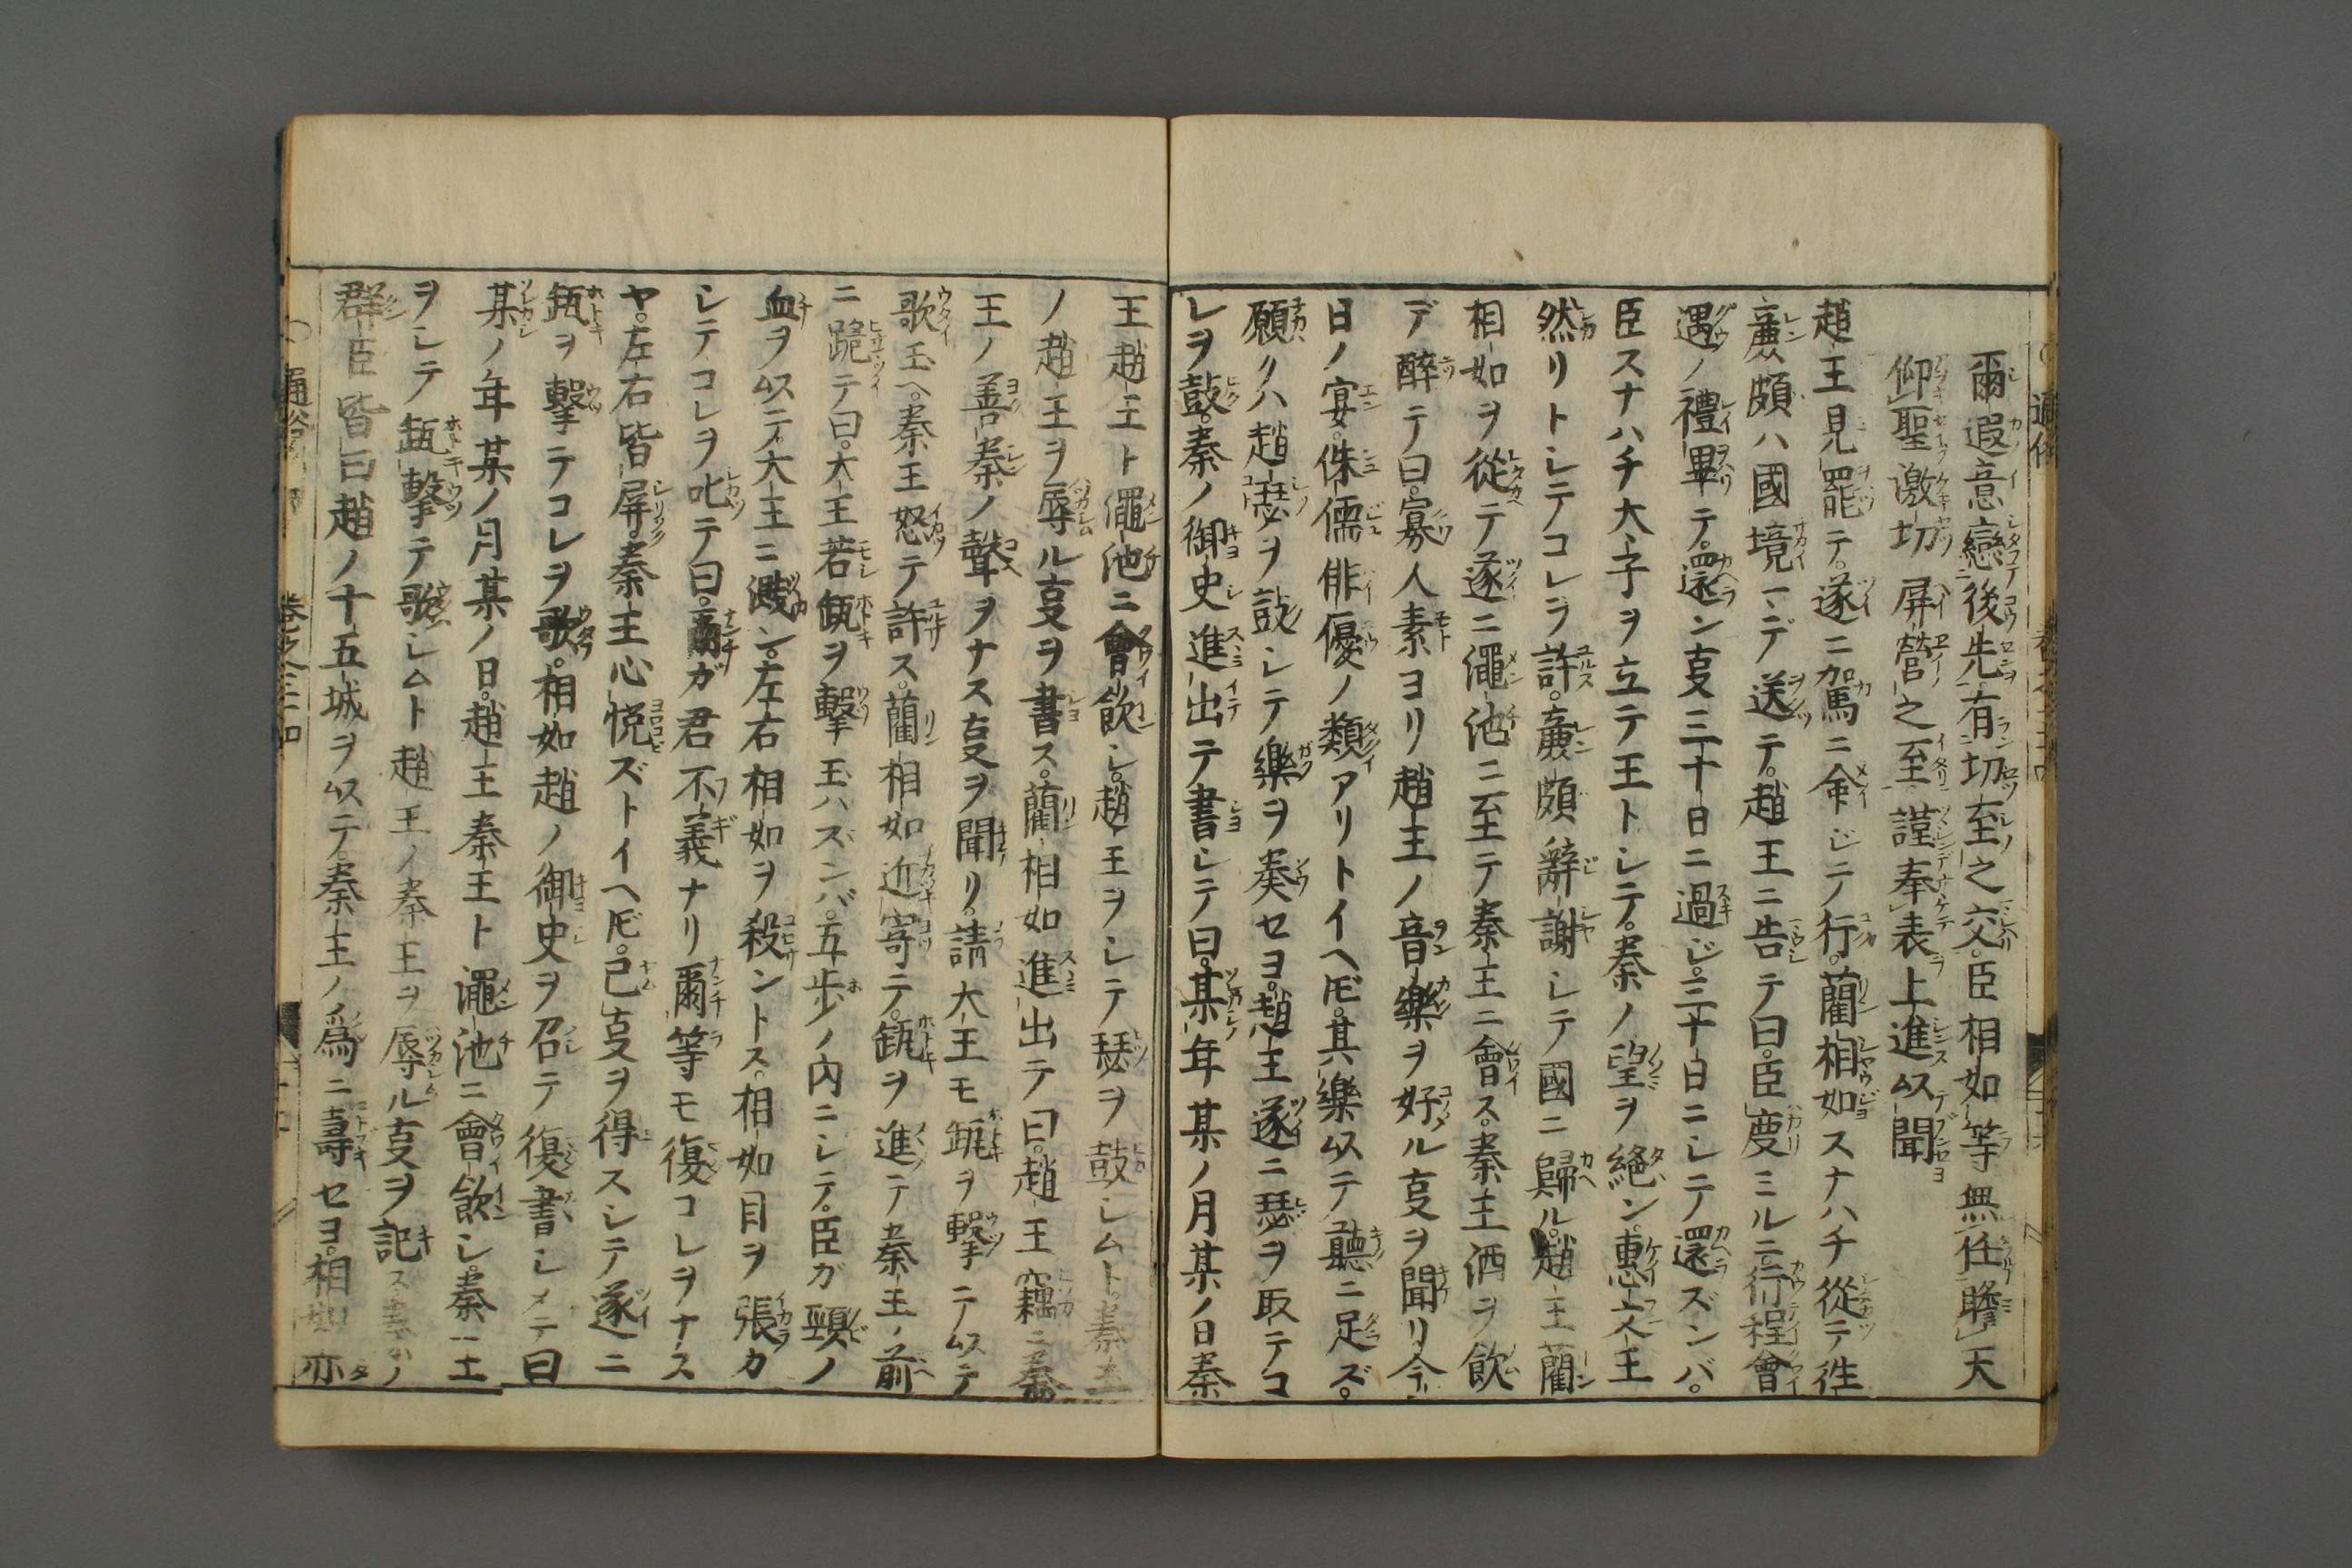 爾遐意戀後先有切至之交臣相如等無任瞻天
仰聖激切屏營之至謹奉表上進以聞
趙王見罷テ遂ニ駕ニ命ジテ行藺相如スナハチ從テ徃
廉頗ハ國境マデ送テ趙王ニ告テ曰臣度ミルニ行程會
遇ノ禮畢テ還ン叓三十日ニ過ジ三十日ニシテ還ズンバ
臣スナハチ太子ヲ立テ王トシテ秦ノ望ヲ絶ン惠文王
然リトシテコレヲ許廉頗辭謝シテ國ニ歸ル趙王藺
相如ヲ從テ遂ニ澠池ニ至テ秦王ニ會ス秦王酒ヲ飲
デ醉テ曰寡人素ヨリ趙王ノ音樂ヲ好ル叓ヲ聞リ今
日ノ宴侏儒俳優ノ類アリトイヘ𪜈其樂以テ聽ニ足ズ
願クハ趙瑟ヲ鼓シテ樂ヲ奏セヨ趙王遂ニ瑟ヲ取テコ
レヲ鼓秦ノ御史進出テ書シテ曰某年某ノ月某ノ日秦
王趙王ト澠池ニ會飲シ趙王ヲシテ瑟ヲ鼓シムト秦王
ノ趙王ヲ辱ル叓ヲ書ス藺相如進出テ曰趙王竊ニ秦
王ノ善秦ノ聲ヲナス叓ヲ聞リ請大王モ缻ヲ撃テ以テ
歌玉ヘ秦王怒テ許ス藺相如近寄テ缻ヲ進テ秦王ノ前
ニ跪テ曰大王若缻ヲ撃玉ハズンバ五歩ノ内ニシテ臣ガ頸ノ
血ヲ以テ大王ニ濺ン左右相如ヲ殺ントス相如目ヲ張カ
シテコレヲ叱テ曰爾ガ君不義ナリ爾等モ復コレヲナス
ヤ左右皆屏秦王心悦ズトイヘ𪜈已叓ヲ得スシテ遂ニ
缻ヲ撃テコレヲ歌相如趙ノ御史ヲ召テ復書シメテ曰
某ノ年某ノ月某ノ日趙王秦王ト澠池ニ會飲シ秦王
ヲシテ缻撃テ歌シムト趙王ノ秦王ヲ辱ル叓ヲ記ス秦ノ
群臣皆曰趙ノ十五城ヲ以テ秦王ノ爲ニ壽セヨ相如亦